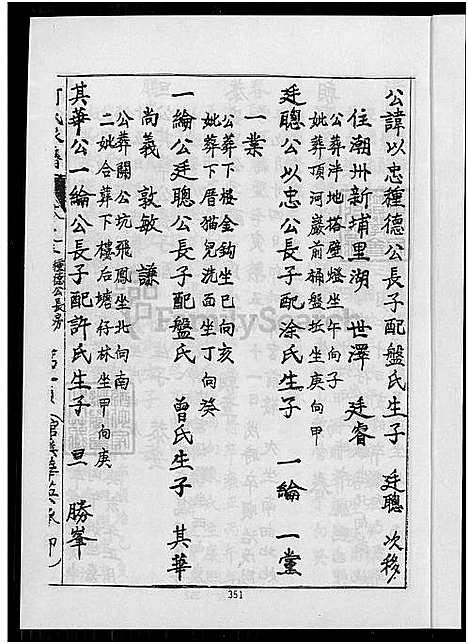 公諱以忠種德公長子配盤氏生子 廷聰 次移
住潮卅新埔里湖 世澤 廷睿
公葬泮地塔壁燈坐午向子
妣葬頂河巖前棉盤坵坐庚向甲
廷聰公以忠公長子配涂氏生子 一綸 一黨
一業
公葬下樓金鈎坐巳向亥
妣葬下厝猫兒洗面坐丁向癸
一綸公廷聰公長子配盤氏 曾氏生子 其華
尚義 敦敏 謙
公葬關公坑飛鳳坐北向南
二妣合葬下樓后塘仔林坐甲向庚
其華公一綸公長子配許氏生子 旦 勝峯
種德公長房
351
FamilySearch